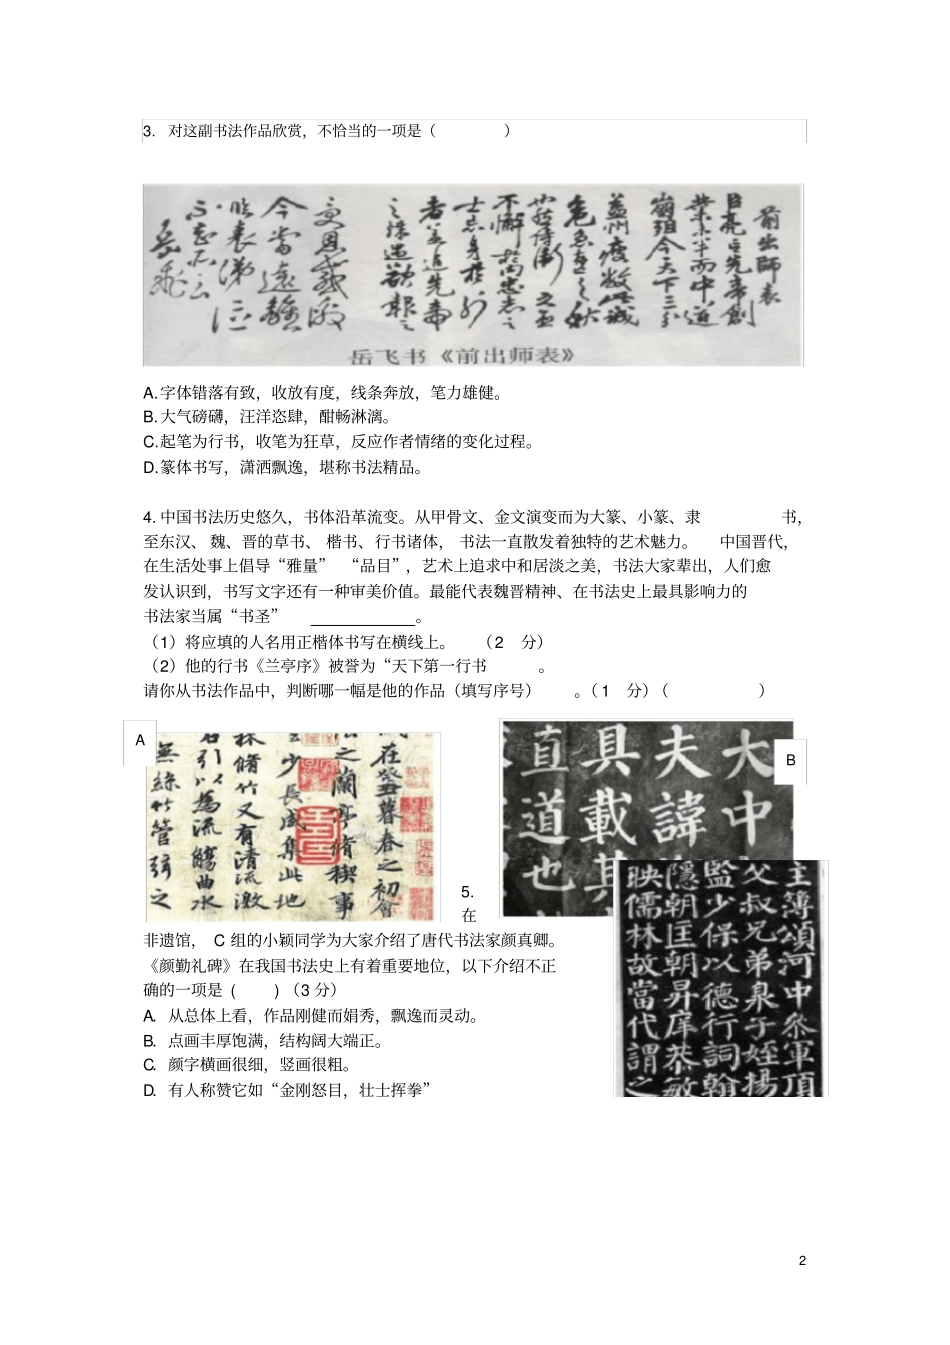 3. 对这副书法作品欣赏，不恰当的一项是（ ）
前出師表
臣亮言先帝創
業未半而中道
崩殂今天下三分
益州疲敝此誠
危急存亡之秋
也然侍衛之臣
不懈於内忠志之
士忘身於外
者蓋追先帝
之殊遇欲報之
受恩感激
今當遠離
臨表涕泣
不知所云
岳飛
岳飞书《前出师表》
A.字体错落有致，收放有度，线条奔放，笔力雄健。
B.大气磅礴，汪洋恣肆，酣畅淋漓。
C.起笔为行书，收笔为狂草，反应作者情绪的变化过程。
D.篆体书写，潇洒飘逸，堪称书法精品。
4. 中国书法历史悠久，书体沿革流变。从甲骨文、金文演变而为大篆、小篆、隶 书，
至东汉、 魏、晋的草书、 楷书、行书诸体， 书法一直散发着独特的艺术魅力。 中国晋代，
在生活处事上倡导“雅量” “品目”，艺术上追求中和居淡之美，书法大家辈出，人们愈
发认识到，书写文字还有一种审美价值。最能代表魏晋精神、在书法史上最具影响力的
书法家当属“书圣” ____________。
（1）将应填的人名用正楷体书写在横线上。 （2 分）
（2）他的行书《兰亭序》被誉为“天下第一行书 。
请你从书法作品中，判断哪一幅是他的作品（填写序号） 。（ 1 分）（ ）
A
在癸丑暮春之初會
之蘭亭脩禊事
少長咸集此地
林脩竹又有清流激
右引以為流觴曲水
無絲竹管弦之
B
大中
夫諱
具載其
直道也
主簿頌河中參軍頂
父叔兄弟泉子姪揚
監少保以德行詞翰
隱朝匡朝昇庠恭敏
映儒林故當代謂之
5.
在
非遗馆， C 组的小颖同学为大家介绍了唐代书法家颜真卿。
《颜勤礼碑》在我国书法史上有着重要地位，以下介绍不正
确的一项是 ( ) （3 分）
A. 从总体上看，作品刚健而娟秀，飘逸而灵动。
B. 点画丰厚饱满，结构阔大端正。
C. 颜字横画很细，竖画很粗。
D. 有人称赞它如“金刚怒目，壮士挥拳”
2